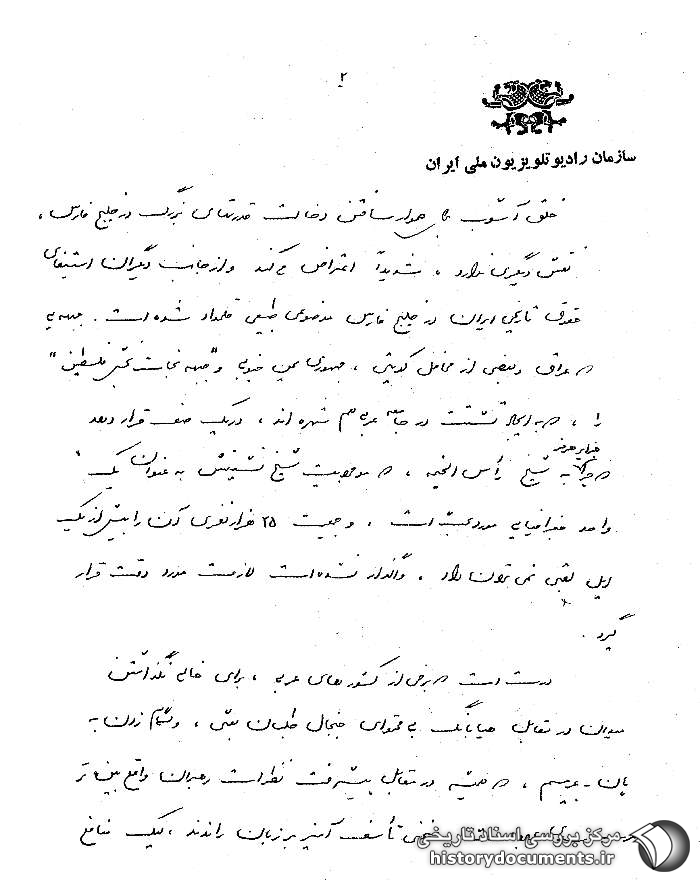 ۲
سازمان رادیو تلویزیون ملی ایران
خلق آشوب و هموار ساختن دخالت قدرتهای بزرگ در خلیج فارس ،
نقش دیگری ندارد ، شدیداً اعتراض میکند و از جانب دیگران استیفای
حقوق تاریخی ایران در خلیج فارس موضوعی طبیعی قلمداد شده است . جبهه یی
که عراق و بعضی از محافل کویتی ، جمهوری یمن جنوبی و "جبهه نجات بخش فلسطین"
را ، که به ایجاد تشتت در جامعه عربی هم شهره اند ، در یک صف قرار دهد
که چرا به شیخ رأس الخیمه ، که موجودیت شیخ نشینش به عنوان یک
واحد جغرافیایی مورد است ، و جمعیت ۲۵ هزار نفری آن را بیش از یک
ایل لقبی نمی توان داد ، واگذار نشده است لازمست مورد دقت قرار
گیرد .
درست است که برخی از کشورهای عربی ، برای خالی نگذاشتن
میدان در مقابل هیابانگ بی محتوای جنجال طلبان بعثی ، و زدن به
پان - عربیسم ، که همیشه در مقابل پیشرفت نظرات رهبران واقع بین تر
تأسف آمیز بر زبان راندند ، لیک منافع
مرکز بررسی اسناد تاریخی
historydocuments.ir